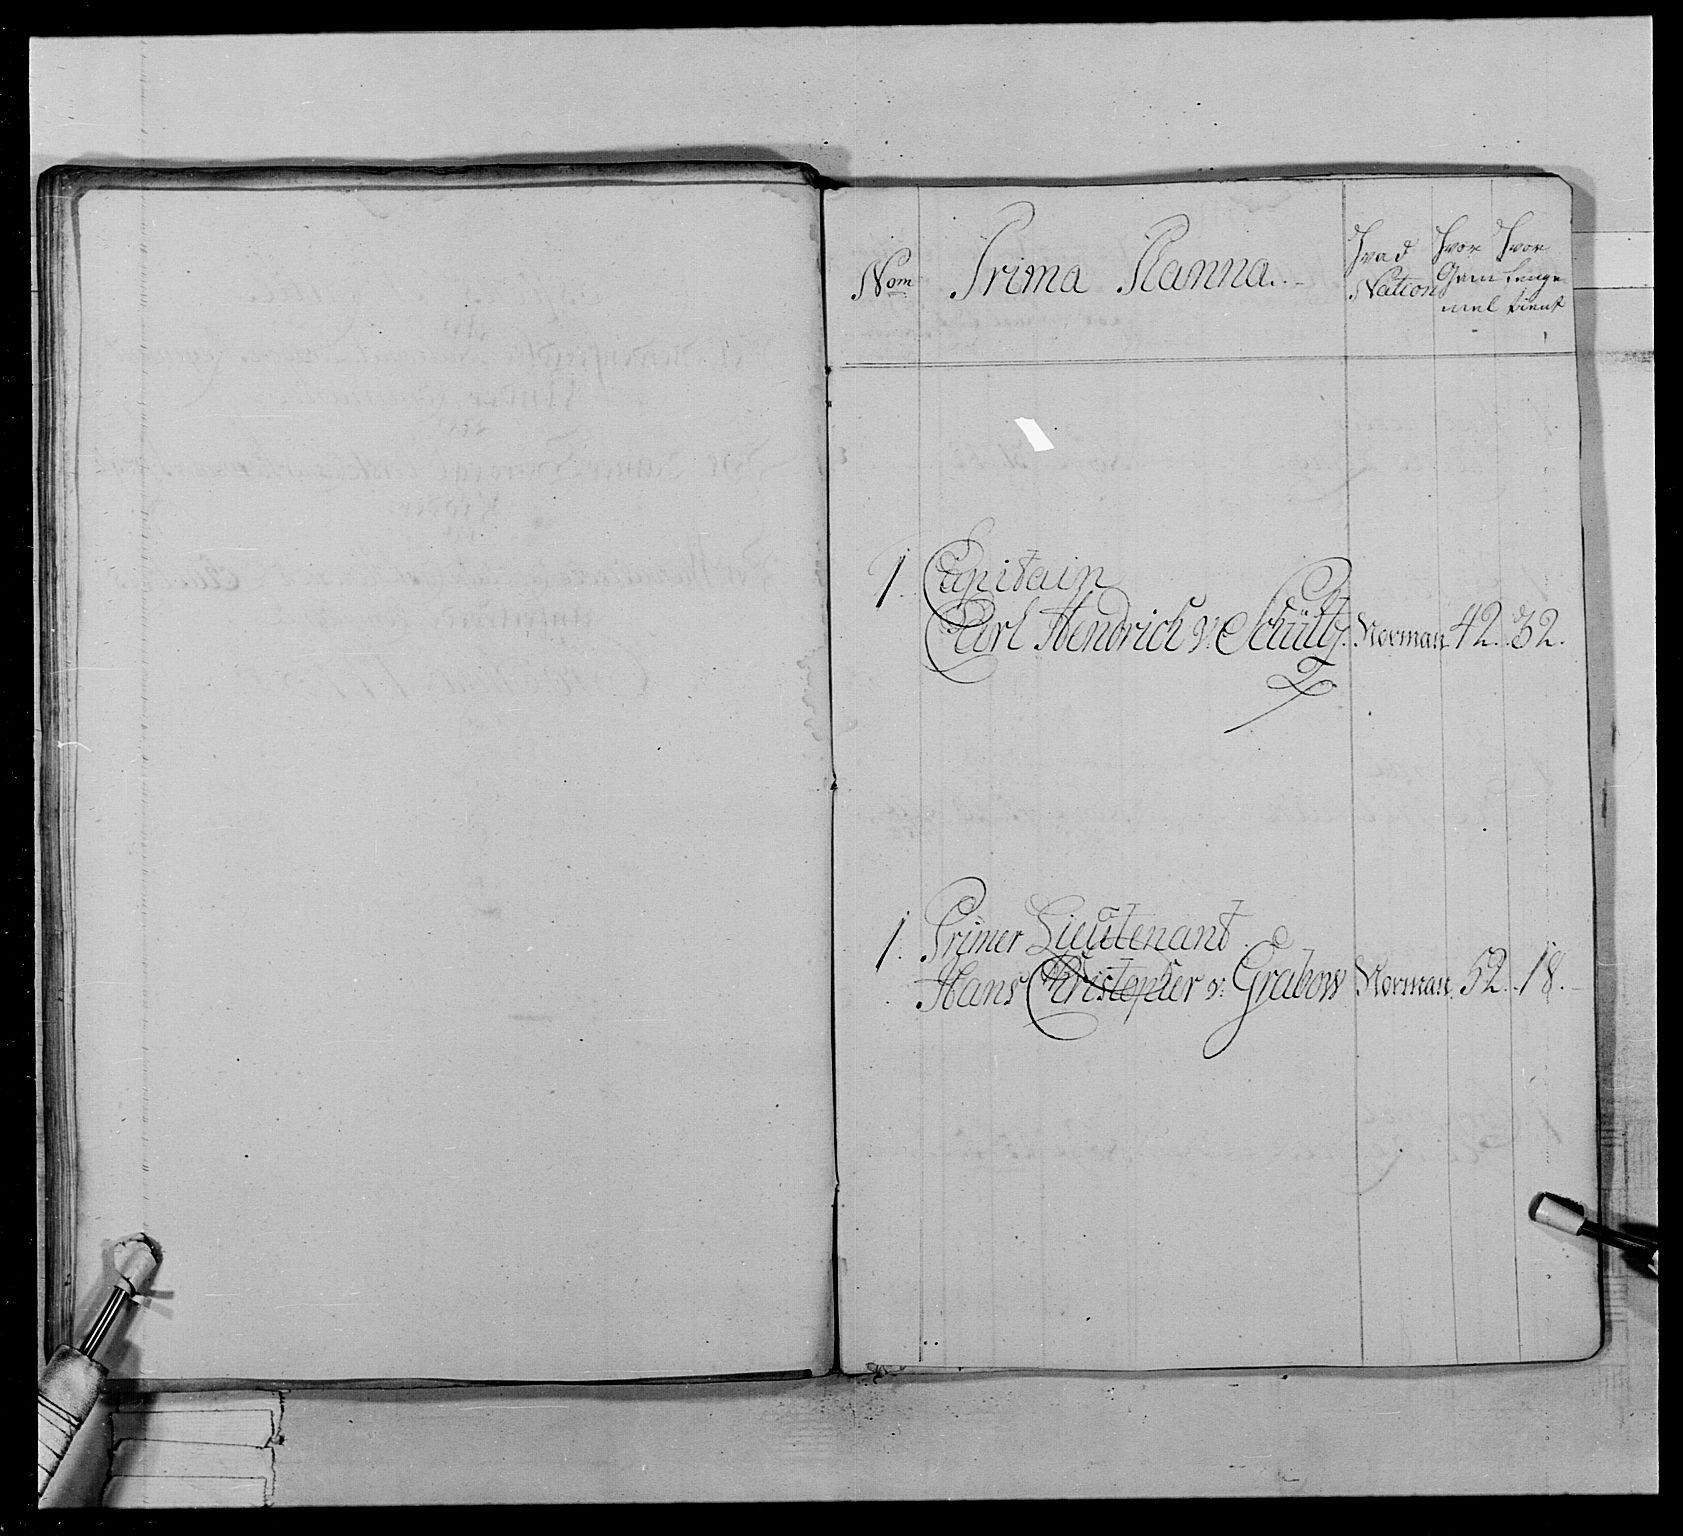 Nom Prima Planna. Hvad Nation Hvor Gammel Hvor Lenge tient
1. Capitain
Carl Hendrich v. Schültz. Norman 42. 32.
1. Primer Lieutenant
Hans Christopher v. Grabow Norman. 52. 18.